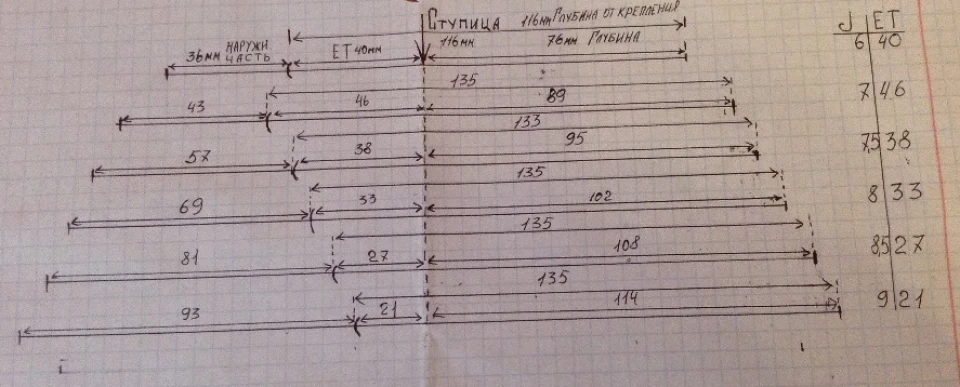 Ступица 116мм Глубина от крепления J ET
36мм наружн часть ET 40мм 116мм 76мм Глубина 6 40
135
43 46 89 7 46
133
57 38 95 7,5 38
135
69 33 102 8 33
135
81 27 108 8,5 27
135
93 21 114 9 21